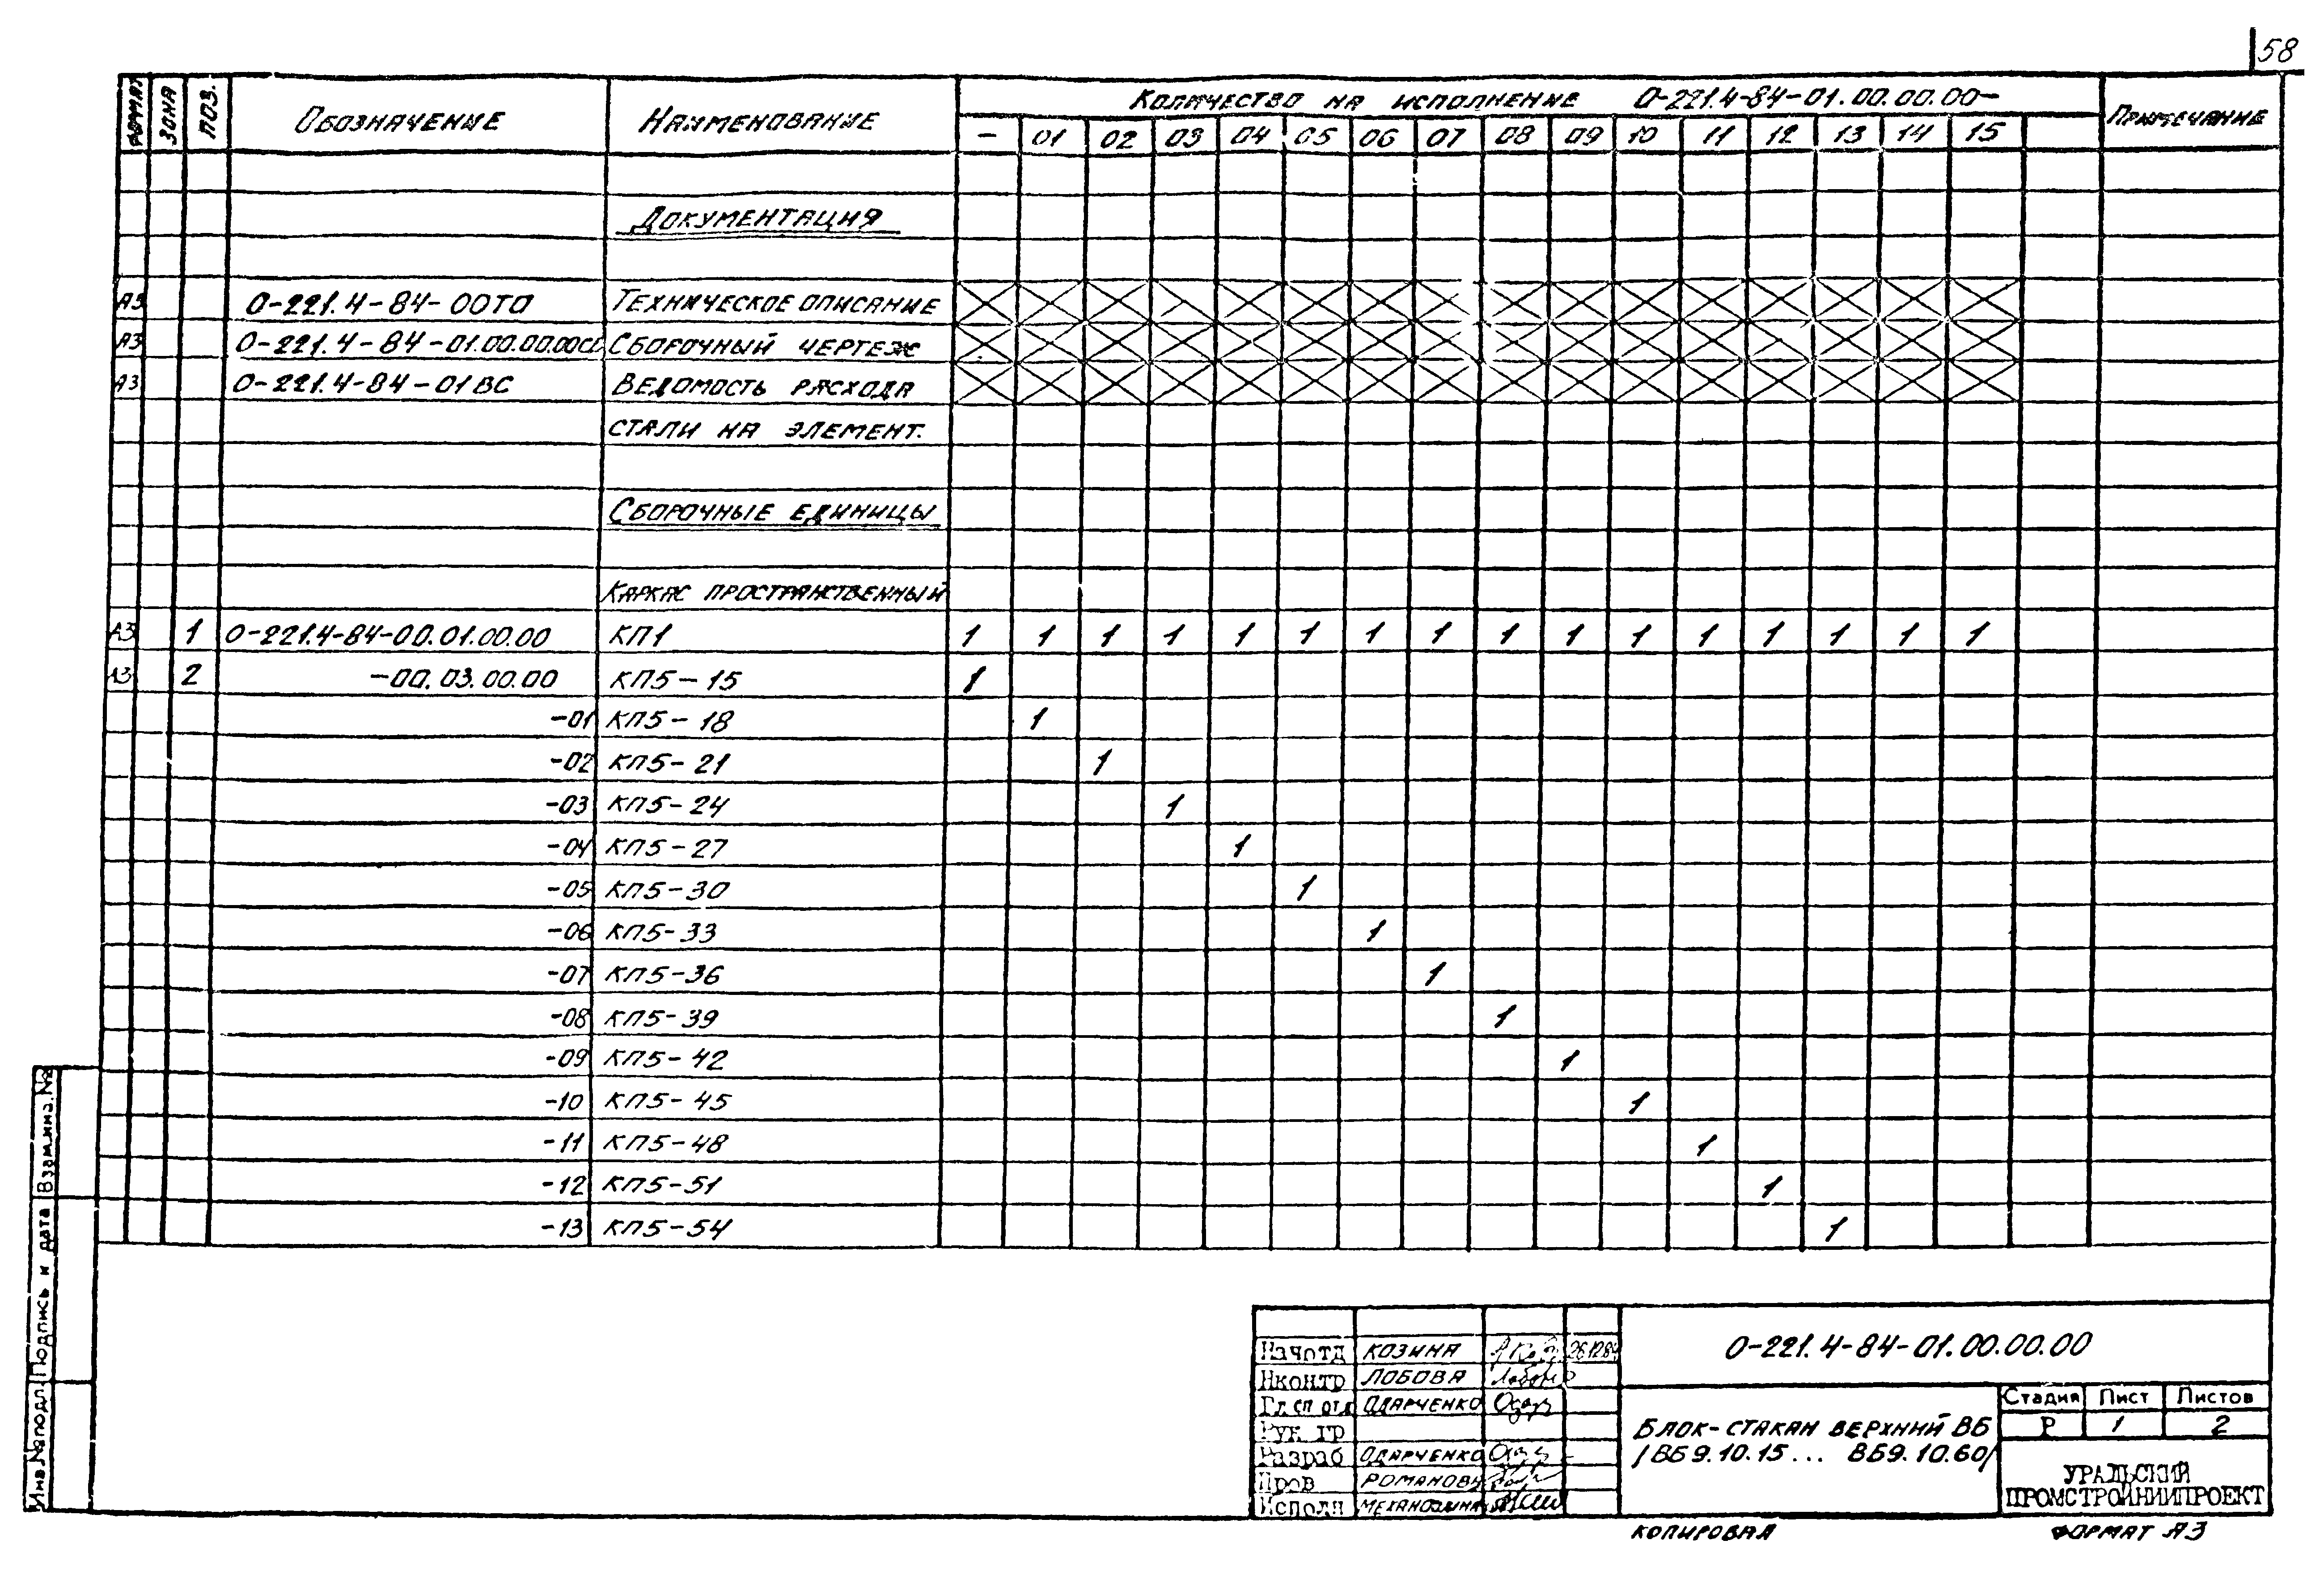 58
Формат Зона Поз. Обозначение Наименование Количество на исполнение 0-221.4-84-01.00.00.00- Примечание
- 01 02 03 04 05 06 07 08 09 10 11 12 13 14 15
Документация
А3 0-221.4-84-00ТО Техническое описание
А3 0-221.4-84-01.00.00.00СБ Сборочный чертеж
А3 0-221.4-84-01ВС Ведомость расхода
стали на элемент.
Сборочные единицы
Каркас пространственный
А3 1 0-221.4-84-00.01.00.00 КП1 1 1 1 1 1 1 1 1 1 1 1 1 1 1 1 1
А3 2 -00.03.00.00 КП5-15 1
-01 КП5-18 1
-02 КП5-21 1
-03 КП5-24 1
-04 КП5-27 1
-05 КП5-30 1
-06 КП5-33 1
-07 КП5-36 1
-08 КП5-39 1
-09 КП5-42 1
-10 КП5-45 1
-11 КП5-48 1
-12 КП5-51 1
-13 КП5-54 1
Взам.инв.№
Подпись и дата
Инв.№подл.
Начотд Козина 26.12.84
Нконтр Лобова
Гл сп отд Одарченко
Рук гр
Разраб Одарченко
Пров Романова
Исполн Механошина
0-221.4-84-01.00.00.00
Блок-стакан верхний ВБ
/ВБ9.10.15... ВБ9.10.60/
Стадия Лист Листов
Р 1 2
УРАЛЬСКИЙ
ПРОМСТРОЙНИИПРОЕКТ
Копировал Формат А3